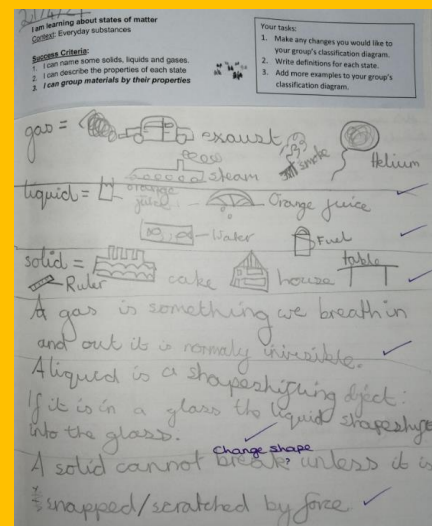 I am learning about states of matter
Context: Everyday substances
Success Criteria:
1. I can name some solids, liquids and gases.
2. I can describe the properties of each state
3. I can group materials by their properties
Your tasks:
1. Make any changes you would like to
your group's classification diagram.
2. Write definitions for each state.
3. Add more examples to your group's
classification diagram.
gas = exaust
smoke
Helium
steam
liquid = orange
juice
Orange juice
Water
Fuel
solid = cake house table
Ruler
A gas is something we breath in
and out it is normaly invisible.
A liquid is a shapeshifting object:
If it is in a glass the liquid shapeshifts
into the glass.
Change shape
A solid cannot break? unless it is
snapped/scratched by force